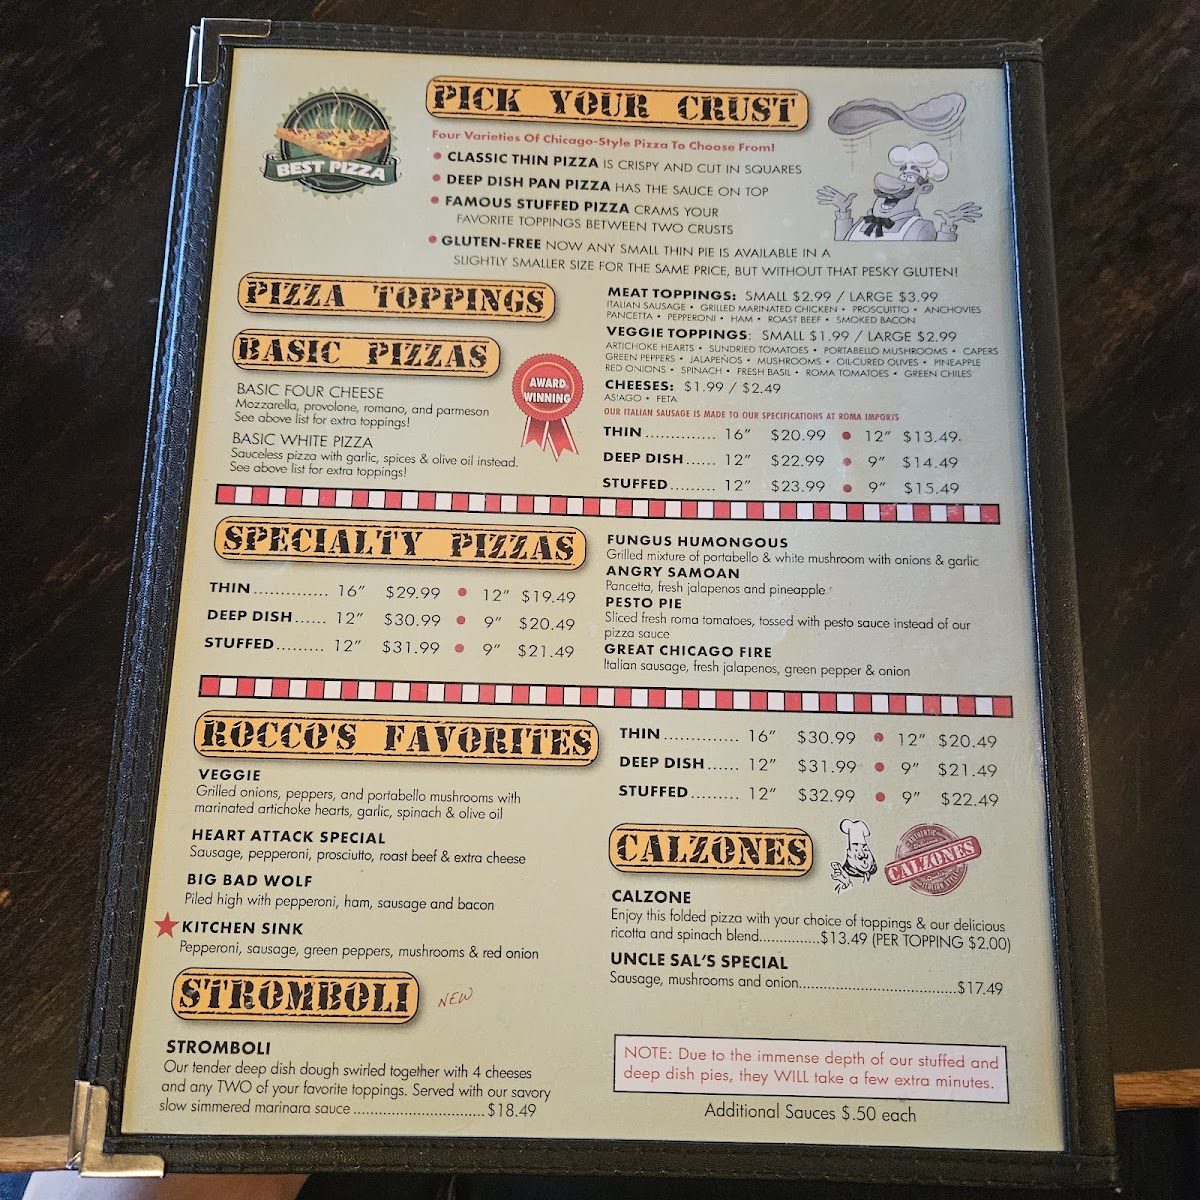 BEST PIZZA
PICK YOUR CRUST
Four Varieties Of Chicago-Style Pizza To Choose From!
• CLASSIC THIN PIZZA IS CRISPY AND CUT IN SQUARES
• DEEP DISH PAN PIZZA HAS THE SAUCE ON TOP
• FAMOUS STUFFED PIZZA CRAMS YOUR
FAVORITE TOPPINGS BETWEEN TWO CRUSTS
• GLUTEN-FREE NOW ANY SMALL THIN PIE IS AVAILABLE IN A
SLIGHTLY SMALLER SIZE FOR THE SAME PRICE, BUT WITHOUT THAT PESKY GLUTEN!
PIZZA TOPPINGS
MEAT TOPPINGS: SMALL $2.99 / LARGE $3.99
ITALIAN SAUSAGE • GRILLED MARINATED CHICKEN • PROSCUITTO • ANCHOVIES
PANCETTA • PEPPERONI • HAM • ROAST BEEF • SMOKED BACON
VEGGIE TOPPINGS: SMALL $1.99 / LARGE $2.99
ARTICHOKE HEARTS • SUNDRIED TOMATOES • PORTABELLO MUSHROOMS • CAPERS
GREEN PEPPERS • JALAPEÑOS • MUSHROOMS • OILCURED OLIVES • PINEAPPLE
RED ONIONS • SPINACH • FRESH BASIL • ROMA TOMATOES • GREEN CHILES
CHEESES: $1.99 / $2.49
ASIAGO • FETA
OUR ITALIAN SAUSAGE IS MADE TO OUR SPECIFICATIONS AT ROMA IMPORTS
BASIC PIZZAS
AWARD
WINNING
BASIC FOUR CHEESE
Mozzarella, provolone, romano, and parmesan
See above list for extra toppings!
BASIC WHITE PIZZA
Sauceless pizza with garlic, spices & olive oil instead.
See above list for extra toppings!
THIN.............. 16" $20.99 • 12" $13.49.
DEEP DISH...... 12" $22.99 • 9" $14.49
STUFFED......... 12" $23.99 • 9" $15.49
SPECIALTY PIZZAS
THIN.............. 16" $29.99 • 12" $19.49
DEEP DISH...... 12" $30.99 • 9" $20.49
STUFFED......... 12" $31.99 • 9" $21.49
FUNGUS HUMONGOUS
Grilled mixture of portabello & white mushroom with onions & garlic
ANGRY SAMOAN
Pancetta, fresh jalapenos and pineapple
PESTO PIE
Sliced fresh roma tomatoes, tossed with pesto sauce instead of our
pizza sauce
GREAT CHICAGO FIRE
Italian sausage, fresh jalapenos, green pepper & onion
ROCCO'S FAVORITES
VEGGIE
Grilled onions, peppers, and portabello mushrooms with
marinated artichoke hearts, garlic, spinach & olive oil
HEART ATTACK SPECIAL
Sausage, pepperoni, prosciutto, roast beef & extra cheese
BIG BAD WOLF
Piled high with pepperoni, ham, sausage and bacon
★ KITCHEN SINK
Pepperoni, sausage, green peppers, mushrooms & red onion
THIN.............. 16" $30.99 • 12" $20.49
DEEP DISH...... 12" $31.99 • 9" $21.49
STUFFED......... 12" $32.99 • 9" $22.49
CALZONES
AUTHENTIC
CALZONES
ITALIAN STYLE
CALZONE
Enjoy this folded pizza with your choice of toppings & our delicious
ricotta and spinach blend..............$13.49 (PER TOPPING $2.00)
UNCLE SAL'S SPECIAL
Sausage, mushrooms and onion.....................................$17.49
STROMBOLI
NEW
STROMBOLI
Our tender deep dish dough swirled together with 4 cheeses
and any TWO of your favorite toppings. Served with our savory
slow simmered marinara sauce..............................$18.49
NOTE: Due to the immense depth of our stuffed and
deep dish pies, they WILL take a few extra minutes.
Additional Sauces $.50 each